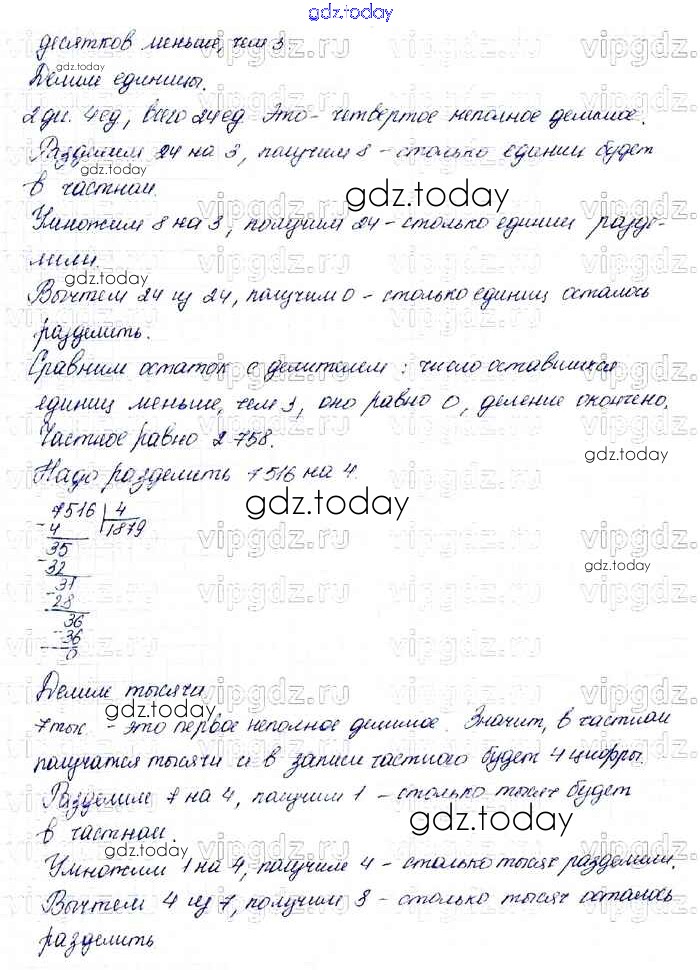 gdz.today
десятков меньше, чем 3
Делим единицы.
2 дес. 4 ед, всего 24 ед. Это - четвертое неполное делимое.
Разделим 24 на 3, получим 8 - столько единиц будет
в частном.
gdz.today
Умножим 8 на 3, получим 24 - столько единиц разде-
лили.
gdz.today
Вычтем 24 из 24, получим 0 - столько единиц осталось
разделить.
Сравним остаток с делителем: число оставшихся
единиц меньше, чем 3, оно равно 0, деление окончено.
Частное равно 2 758.
Надо разделить 7516 на 4.
gdz.today
7516 | 4
- 4 1879
35
- 32
31
- 28
36
- 36
0
gdz.today
Делим тысячи.
gdz.today
7 тыс. - это первое неполное делимое. Значит, в частном
получатся тысячи и в записи частного будет 4 цифры.
Разделим 7 на 4, получим 1 - столько тысяч будет
в частном.
gdz.today
gdz.today
Умножим 1 на 4, получим 4 - столько тысяч разделили.
Вычтем 4 из 7, получим 3 - столько тысяч осталось
разделить
vipgdz.ru